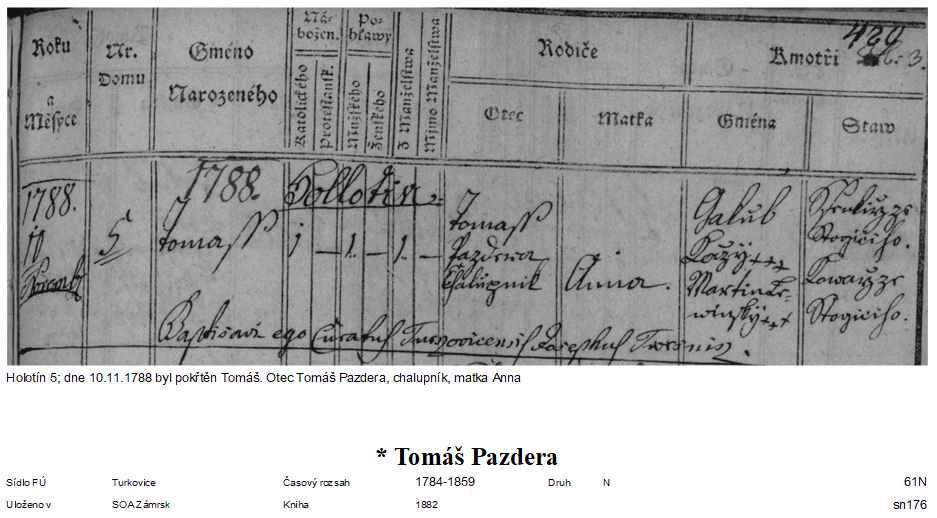 Roku
a
Měsyce
Nr.
Domu
Gméno
Narozeného
Ná-
božen.
Katolického
Protestantsk.
Po-
hlawy
Mužského
Ženského
Z Manželstwa
Mjmo Manželstwa
Rodiče
Otec
Matka
420
Kmotři
3.
Gména
Staw
1788.
Hollotin
1788.
10
5
Tomass
1 — 1. — 1. —
Tomass
Pazdera
Chalupnik
Anna.
Galub
Kozy +++
Martin Le-
winsky +++
Stogiciho.
Stogiciho.
Baptisavi ego Curatus Turkovicensis Josephus
Holotín 5; dne 10.11.1788 byl pokřtěn Tomáš. Otec Tomáš Pazdera, chalupník, matka Anna
* Tomáš Pazdera
Sídlo FÚ Turkovice Časový rozsah 1784-1859 Druh N 61N
Uloženo v SOA Zámrsk Kniha 1882 sn176